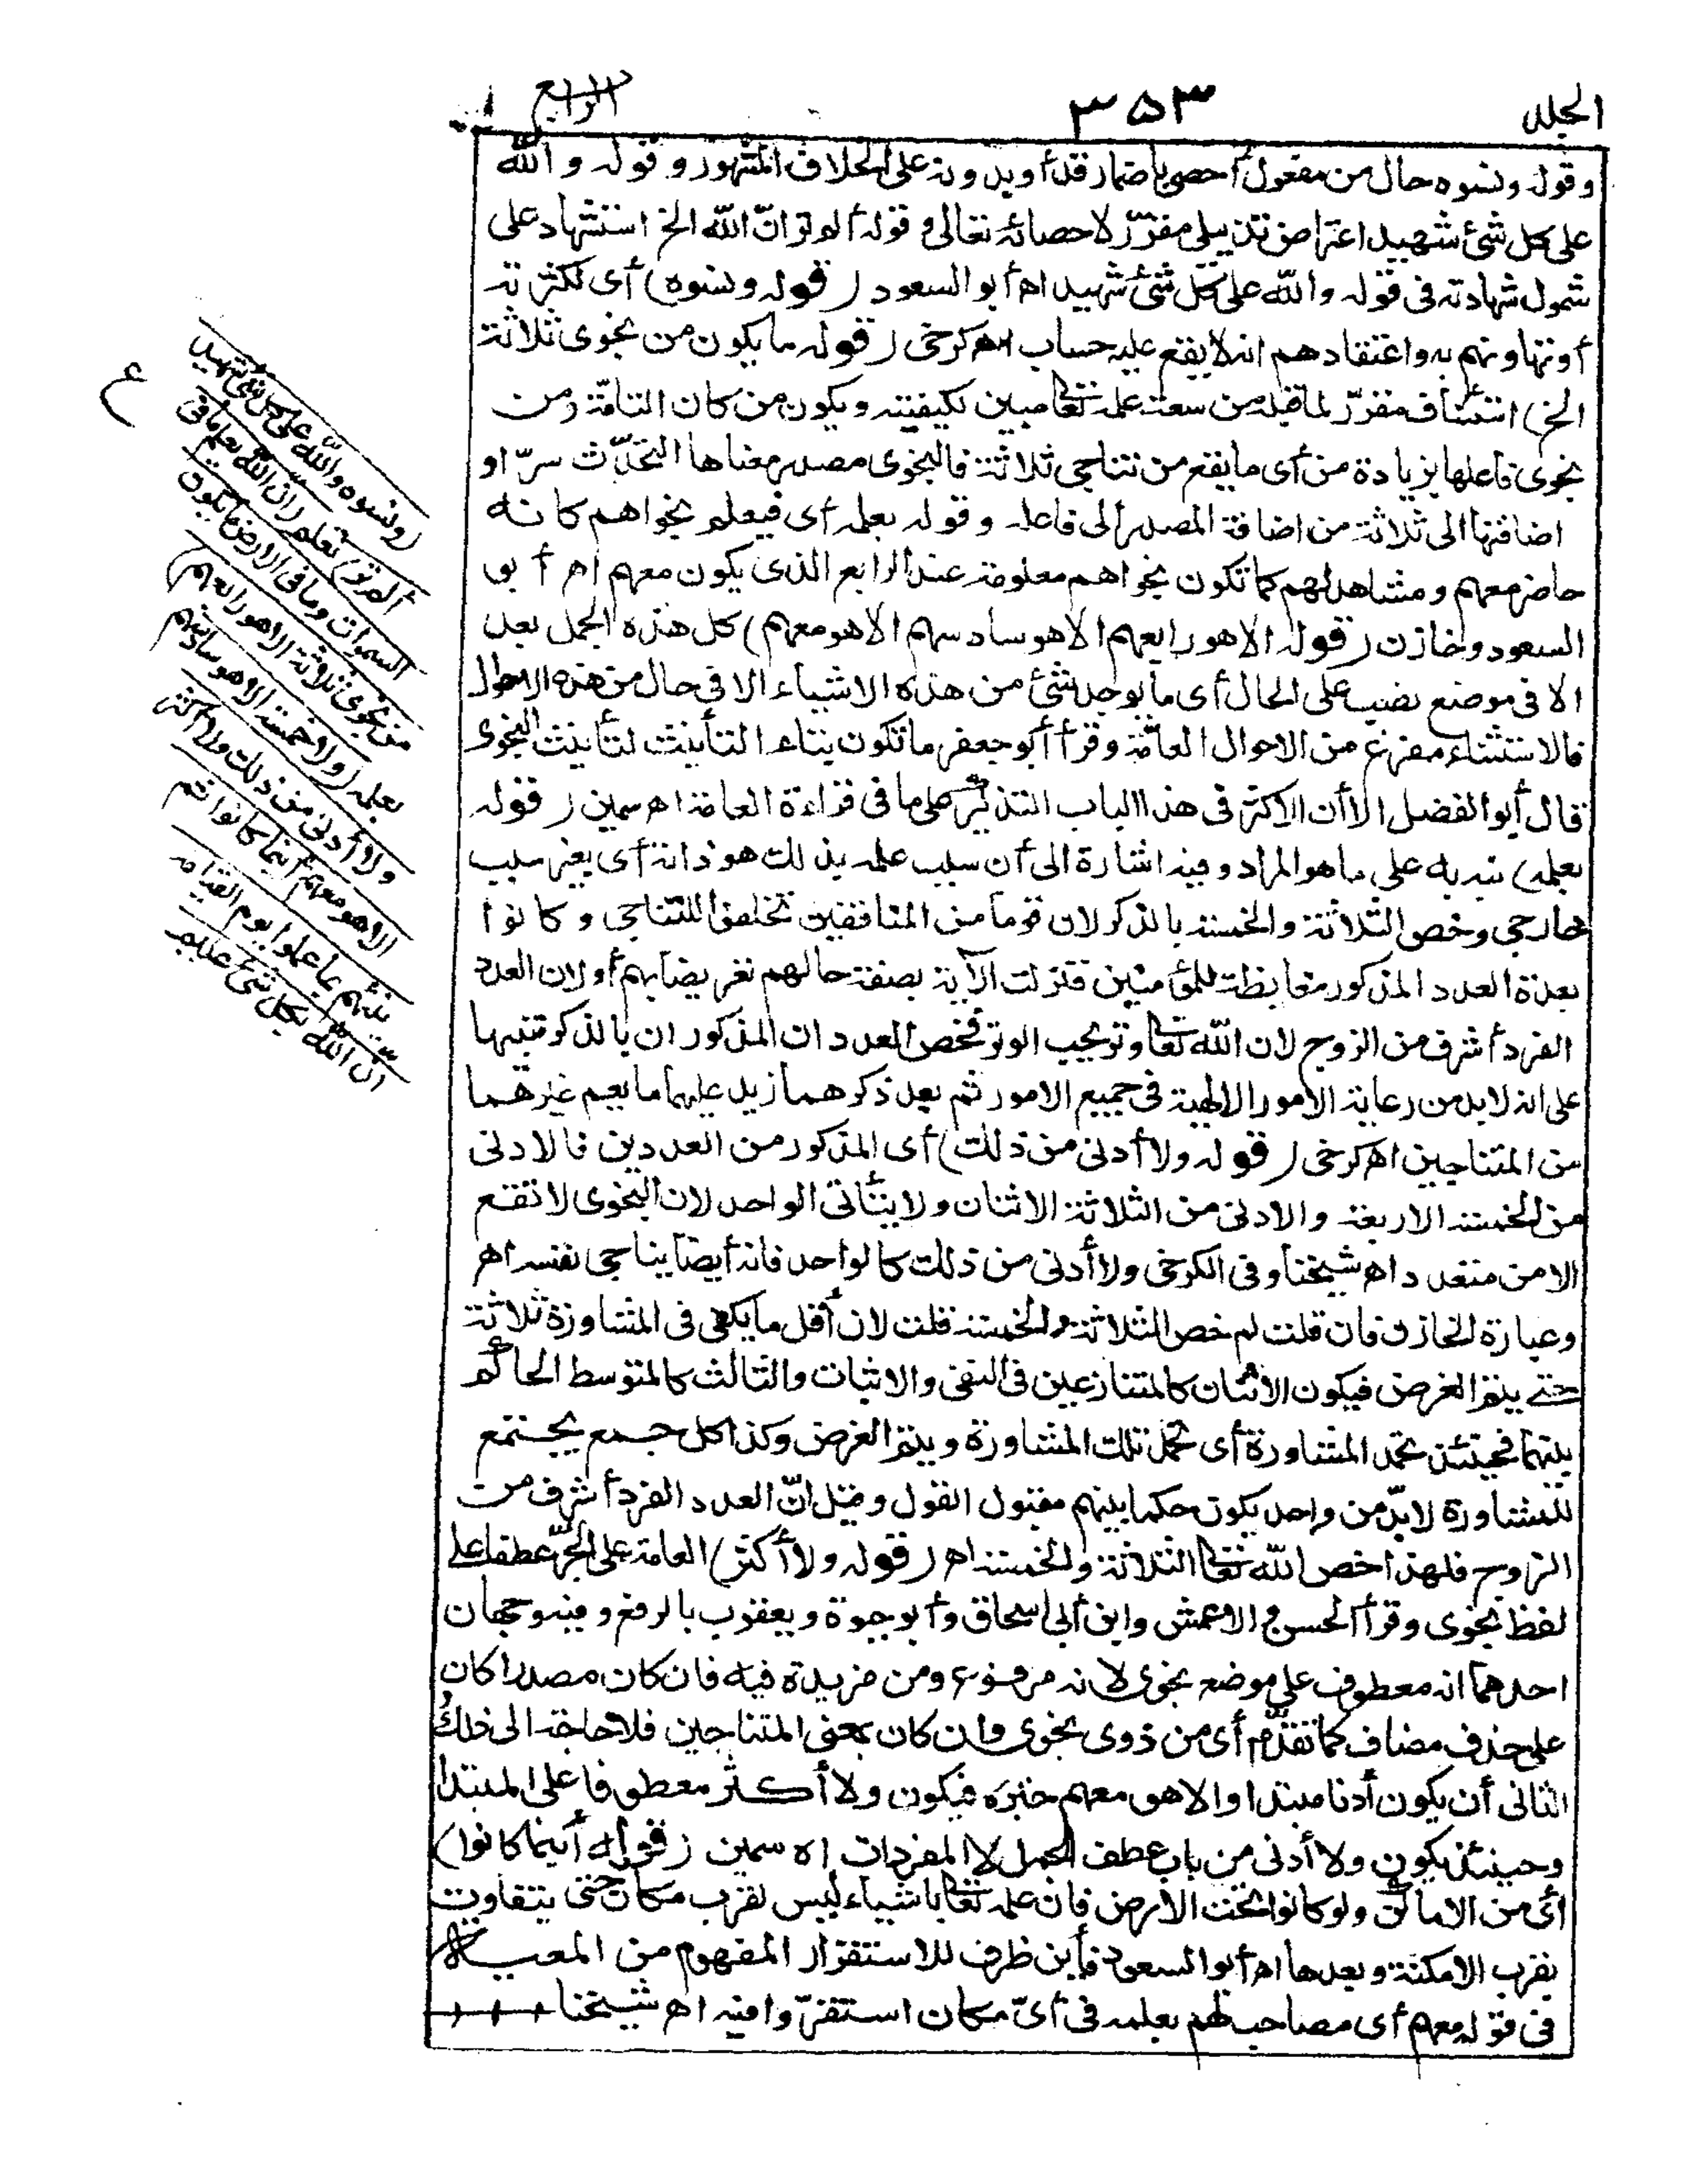 الجلد ٣٥٣ الرابع
وقوله ونسوه حال من مفعول أحصى باضمار قد أو بدونه على الخلاف المشهور وقوله والله
على كل شئ شهيد اعتراض تذييلي مقرّر لاحصائه تعالى وقوله ألم تر انّ الله الخ استشهاد على
شمول شهادته فى قوله والله على كل شئ شهيد اه أبو السعود (قوله ونسوه) أى لكثرته
أو تهاونهم به واعتقادهم انه لا يقع عليه حساب اه كرخى (قوله ما يكون من نجوى ثلاثة
الخ) استئناف مقرّر لما قبله من سعة علمه تعا مبين لكيفيته ويكون من كان التامّة ومن
نجوى فاعلها بزيادة من أى ما يقع من تناجى ثلاثة فالنجوى مصدر معناها التحدّث سرّا و
اضافتها الى ثلاثة من اضافة المصدر الى فاعله وقوله بعلمه أى فيعلم نجواهم كانه
حاضر معهم ومشاهد لهم كما تكون نجواهم معلومة عند الرابع الذى يكون معهم اه أبو
السعود وخازن (قوله الا هو رابعهم الا هو سادسهم الا هو معهم) كل هذه الجمل بعد
الا فى موضع نصب على الحال أى ما يوجد شئ من هذه الاشياء الا فى حال من هذه الاحوال
فالاستثناء مفرغ من الاحوال العامّة وقرأ أبو جعفر ما تكون بتاء التأنيث لتأنيث النجوى
قال أبو الفضل الا أن الاكثر فى هذا الباب التذكير على ما فى قراءة العامة اه سمين (قوله
بعلمه) نبه به على ما هو المراد وفيه اشارة الى أن سبب علمه بذلك هو ذاته أى بغير سبب
خارجى وخص الثلاثة والخمسة بالذكر لان قوما من المنافقين تخلفوا للتناجى وكانوا
بعدة العدد المذكور مغايظة للمؤمنين فنزلت الآية بصفة حالهم تعريضا بهم أو لان العدد
الفرد أشرف من الزوج لان الله تعا وتر يحب الوتر فخص العددان المذكوران بالذكر تنبيها
على انه لا بد من رعاية الامور الالهية فى جميع الامور ثم بعد ذكرهما زيد عليهما ما يعم غيرهما
من المتناجين اه كرخى (قوله ولا أدنى من ذلك) أى المذكور من العددين فالادنى
من الخمسة الاربعة والادنى من الثلاثة الاثنان ولا يتأتى الواحد لان النجوى لا تقع
الا من متعدد اه شيخنا وفى الكرخى ولا أدنى من ذلك كالواحد فانه أيضا يناجى نفسه اه
وعبارة الخازن فان قلت لم خص الثلاثة والخمسة قلت لان أقل ما يكفى فى المشاورة ثلاثة
حتے يتم الغرض فيكون الاثنان كالمتنازعين فى النفى والاثبات والثالث كالمتوسط الحاكم
بينهما فحينئذ تحمد المشاورة أى تحمل تلك المشاورة ويتم الغرض وكذا كل جمع يجتمع
للمشاورة لا بدّ من واحد يكون حكما بينهم مقبول القول وقيل انّ العدد الفرد أشرف من
الزوج فلهذا خص الله تعا الثلاثة والخمسة اه (قوله ولا أكثر) العامة على الجرّ عطفا على
لفظ نجوى وقرأ الحسن والاعمش وابن أبى اسحاق وأبو حيوة ويعقوب بالرفع وفيه وجهان
احدهما انه معطوف على موضع نجوى لانه مرفوع ومن مزيدة فيه فان كان مصدرا كان
على حذف مضاف كما تقدّم أى من ذوى نجوى وان كان بمعنى المتناجين فلا حاجة الى ذلك
الثانى أن يكون أدنا مبتدا والا هو معهم خبره فيكون ولا أكثر معطوفا على المبتدا
وحينئذ يكون ولا أدنى من باب عطف الجمل لا المفردات اه سمين (قوله أينما كانوا)
أى من الاماكن ولو كانوا تحت الارض فان علمه تعا باشياء ليس لقرب مكان حتى يتفاوت
بقرب الامكنة وبعدها اه أبو السعود فأين ظرف للاستقرار المفهوم من المعية
فى قوله معهم أى مصاحب لهم بعلمه فى أىّ مكان استقرّوا فيه اه شيخنا
ع
(ونسوه والله على كل شئ شهيد
ألم تر) تعلم (انّ الله يعلم ما فى
السموات وما فى الارض ما يكون
من نجوى ثلاثة الا هو رابعهم)
بعلمه (ولا خمسة الا هو سادسهم
ولا أدنى من ذلك ولا أكثر
الا هو معهم أينما كانوا ثم
ينبئهم بما عملوا يوم القيامه
انّ الله بكل شئ عليم